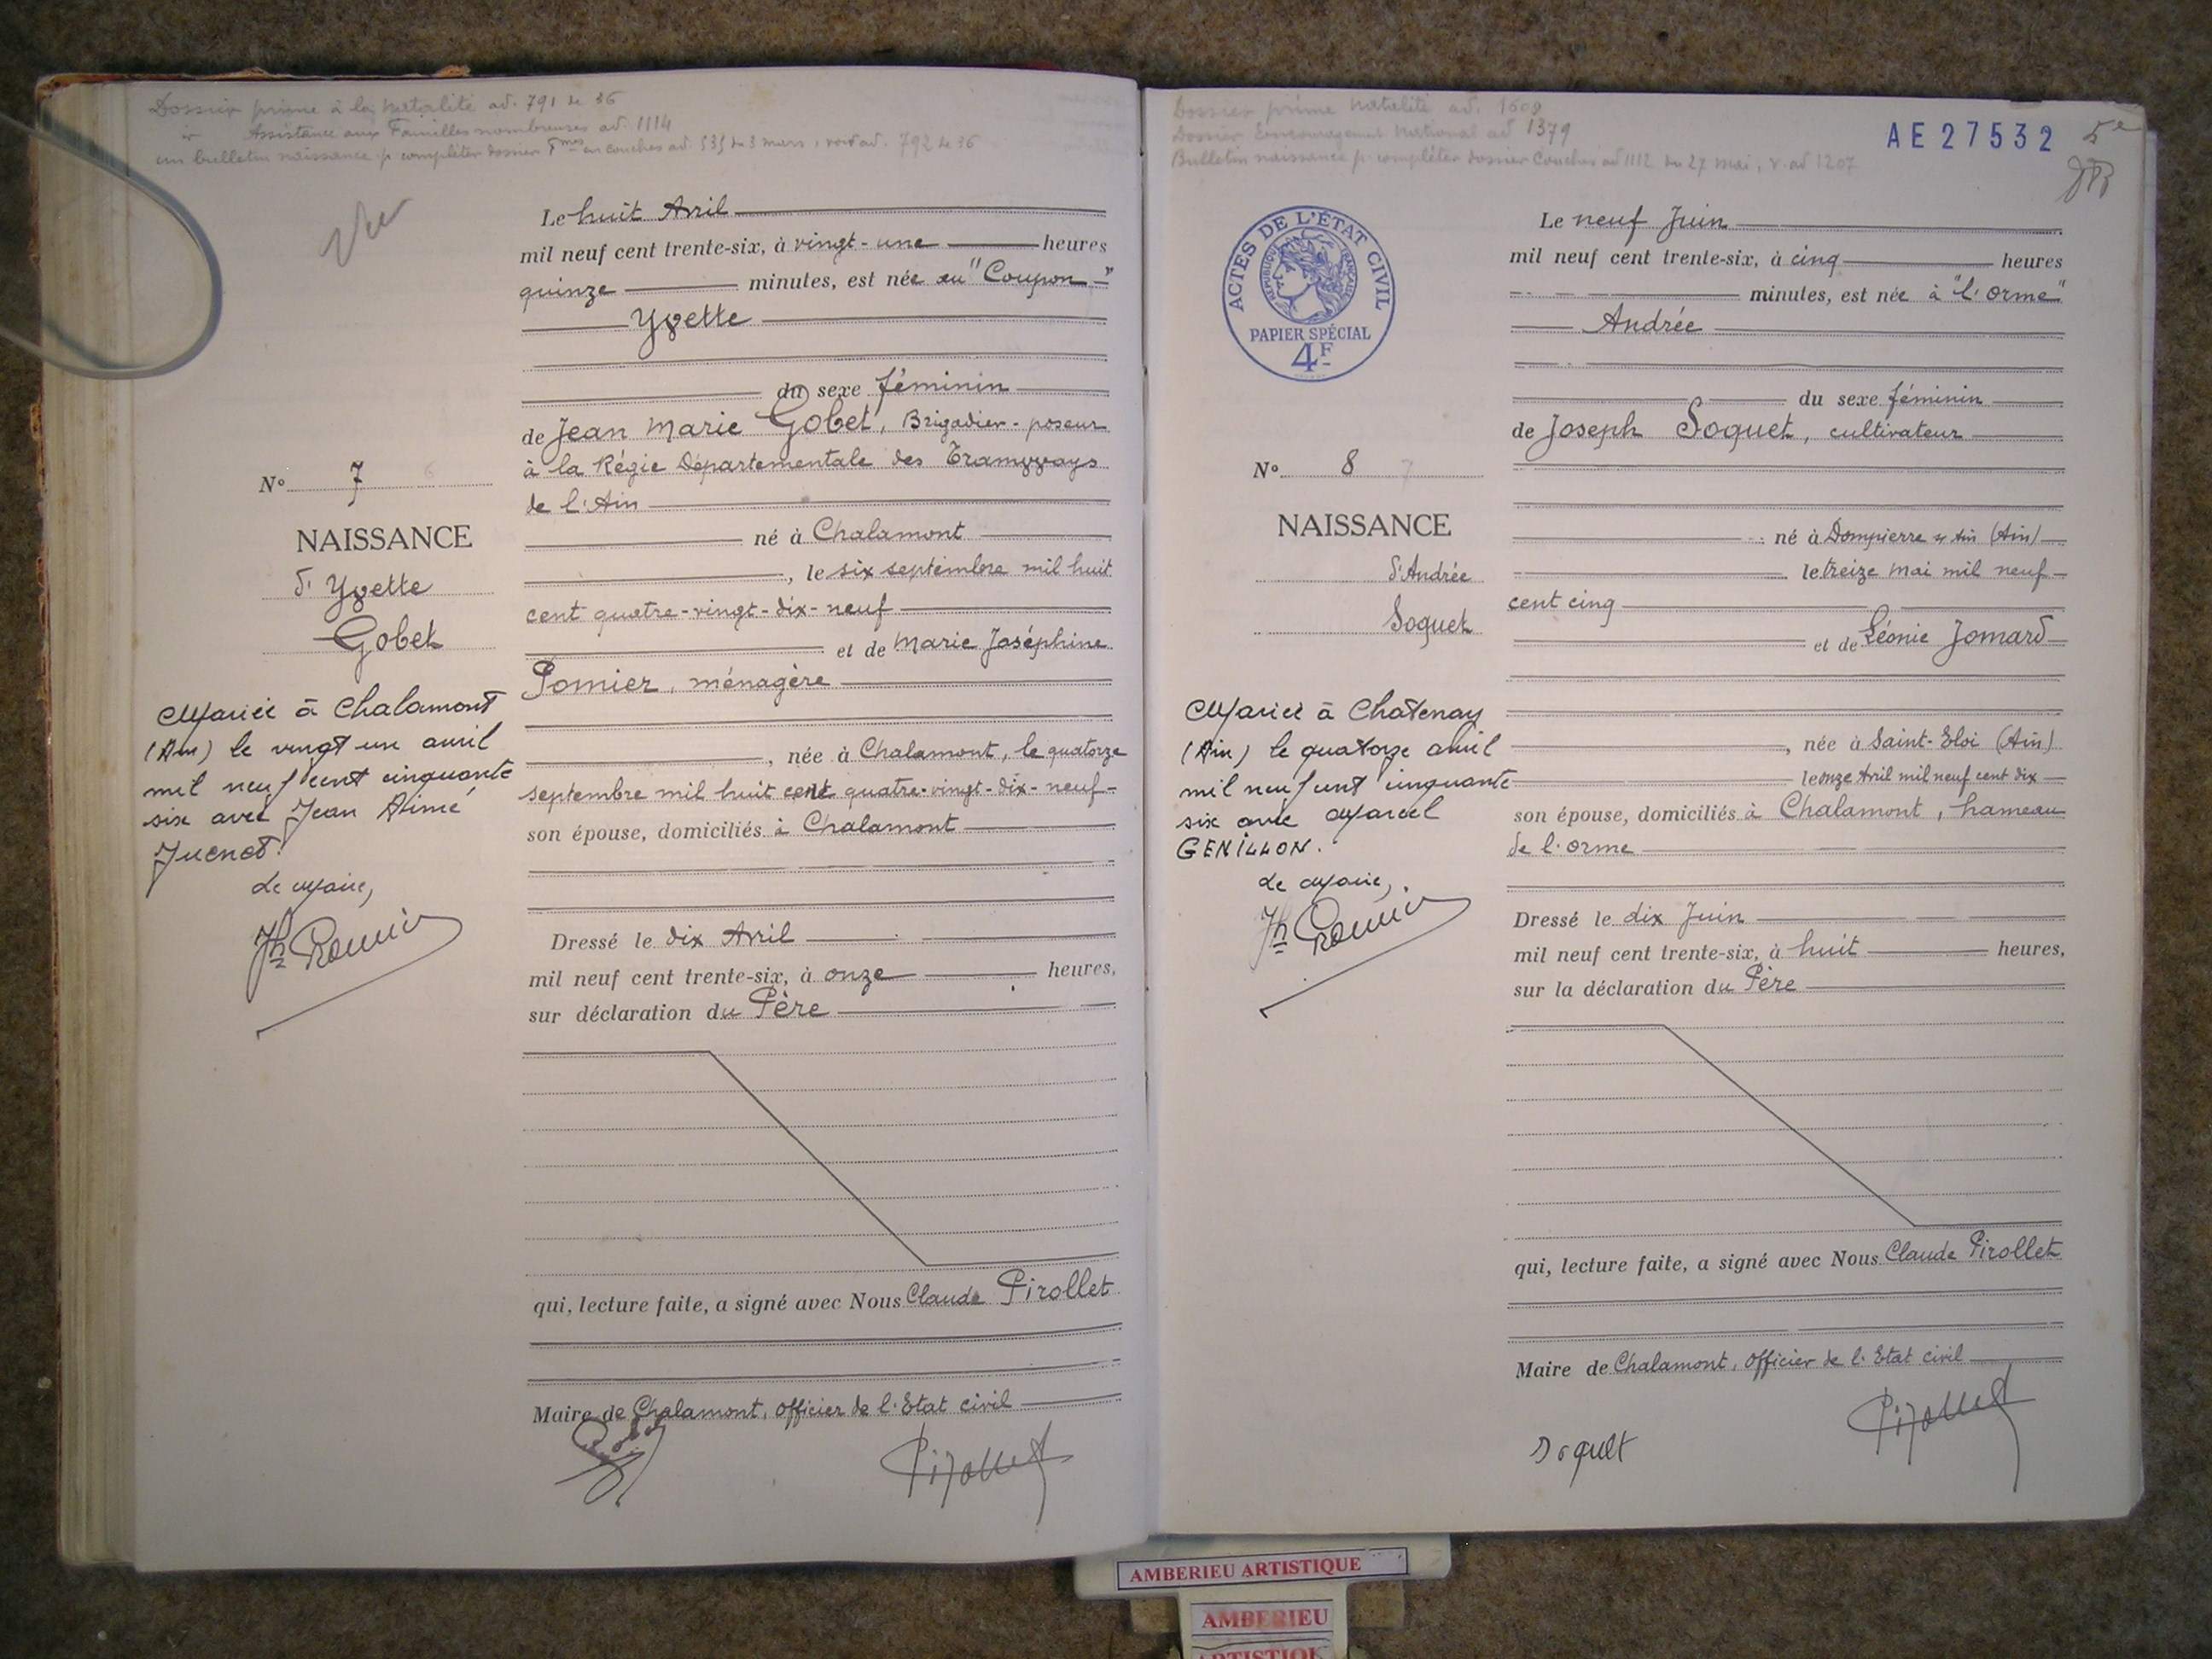 Dossier prime à la Natalité ad. 791 de 36
Assistance aux Familles nombreuses ad. 1114
un bulletin naissance pr compléter dossier en couches ad. 535 du 3 mars, ad. 792 de 36
Vu
Le huit Avril
mil neuf cent trente-six, à vingt-une heures
quinze minutes, est née au "Coupon"
Yvette
du sexe féminin
de Jean Marie Gobet, Brigadier-poseur
à la Régie Départementale des Tramways
de l'Ain
né à Chalamont
, le six septembre mil huit
cent quatre-vingt-dix-neuf
et de Marie Joséphine
Pomier, ménagère
, née à Chalamont, le quatorze
septembre mil huit cent quatre-vingt-dix-neuf
son épouse, domiciliés à Chalamont
Dressé le dix Avril
mil neuf cent trente-six, à onze heures,
sur déclaration du Père
qui, lecture faite, a signé avec Nous Claude Pirollet
Maire de Chalamont, Officier de l'Etat civil
Gobet
Pirollet
No 7
NAISSANCE
d'Yvette
Gobet
Mariée à Chalamont
(Ain) le vingt un avril
mil neuf cent cinquante
six avec Jean Aimé
Juenet.
Le Maire,
Dossier prime Natalité ad. 1609
Dossier Encouragement National ad 1379
Bulletin naissance pr compléter dossier Couches ad 1112 du 27 Mai, v. ad 1207
AE27532
5e
ACTES DE L'ÉTAT CIVIL
RÉPUBLIQUE FRANÇAISE
PAPIER SPÉCIAL
4F
Le neuf Juin
mil neuf cent trente-six, à cinq heures
minutes, est née à "l'Orme"
Andrée
du sexe féminin
de Joseph Soquet, cultivateur
né à Dompierre s/ Ain (Ain)
le treize Mai mil neuf
cent cinq
et de Léonie Jomard
, née à Saint-Eloi (Ain)
le onze Avril mil neuf cent dix
son épouse, domiciliés à Chalamont, hameau
de l'orme
Dressé le dix Juin
mil neuf cent trente-six, à huit heures,
sur la déclaration du Père
qui, lecture faite, a signé avec Nous Claude Pirollet
Maire de Chalamont, Officier de l'Etat civil
Soquet
Pirollet
No 8
NAISSANCE
d'Andrée
Soquet
Mariée à Chatenay
(Ain) le quatorze avril
mil neuf cent cinquante
six avec Marcel
GENILLON.
Le Maire,
AMBERIEU ARTISTIQUE
AMBERIEU
ARTISTIQUE